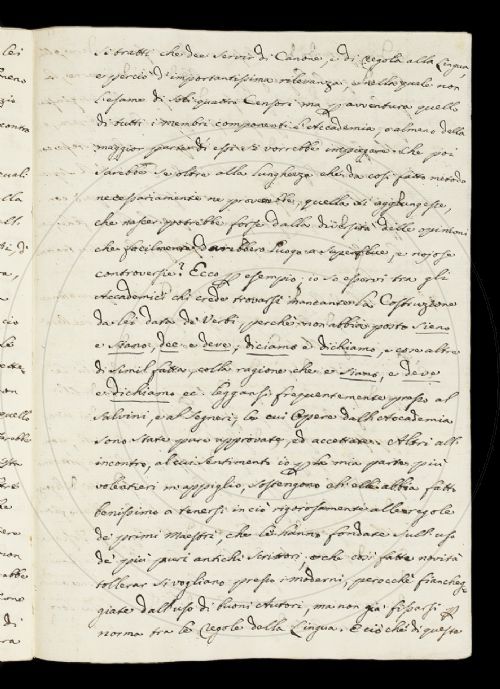 si tratti che dee servir di Canone, e di regola alla Lingua,
e perciò d'importantissima rilevanza, e nella quale non
l'esame di soli quattro Censori ma p avventura quello
di tutti i membri componenti l'Accademia, o almeno della
maggior parte di essi si vorrebbe impiegare. che poi
sarebbe se oltre alla lunghezza che da così fatto metodo
necessariamente ne proverebbe, quella si aggiungesse,
che nascer potrebbe forse dalla diversità delle opinioni
che facilmente darebbero luogo a superflue, e nojose
controversie? Ecco p esempio: io so esservi tra gli
Accademici chi crede trovarsi mancante la Costruzione
da lei data de' Verbi, perchè non abbia posto sieno
e siano, dee e deve, diciamo e dichiamo, e
di simil fatta, colla ragione che e siano, e deve
e dichiamo ec. leggansi frequentemente presso al
Salvini, e al Segneri, le cui Opere dall'Accademia
sono state pure approvate, ed accettate. Altri all'
incontro, al cui sentimento io p la mia parte più
volentieri m'appiglio, sostengono ch'ella abbia fatto
benissimo a tenersi in ciò rigorosamente alle regole
de' primi Maestri, che le hanno fondate sull'uso
de' più puri antichi Scrittori, e che così fatte novità
tollerar si vogliano presso i moderni, perocchè francheg-
giate dall'uso di buoni Autori, ma non già fissarsi p
norma tra le regole della Lingua. E ciò che di queste